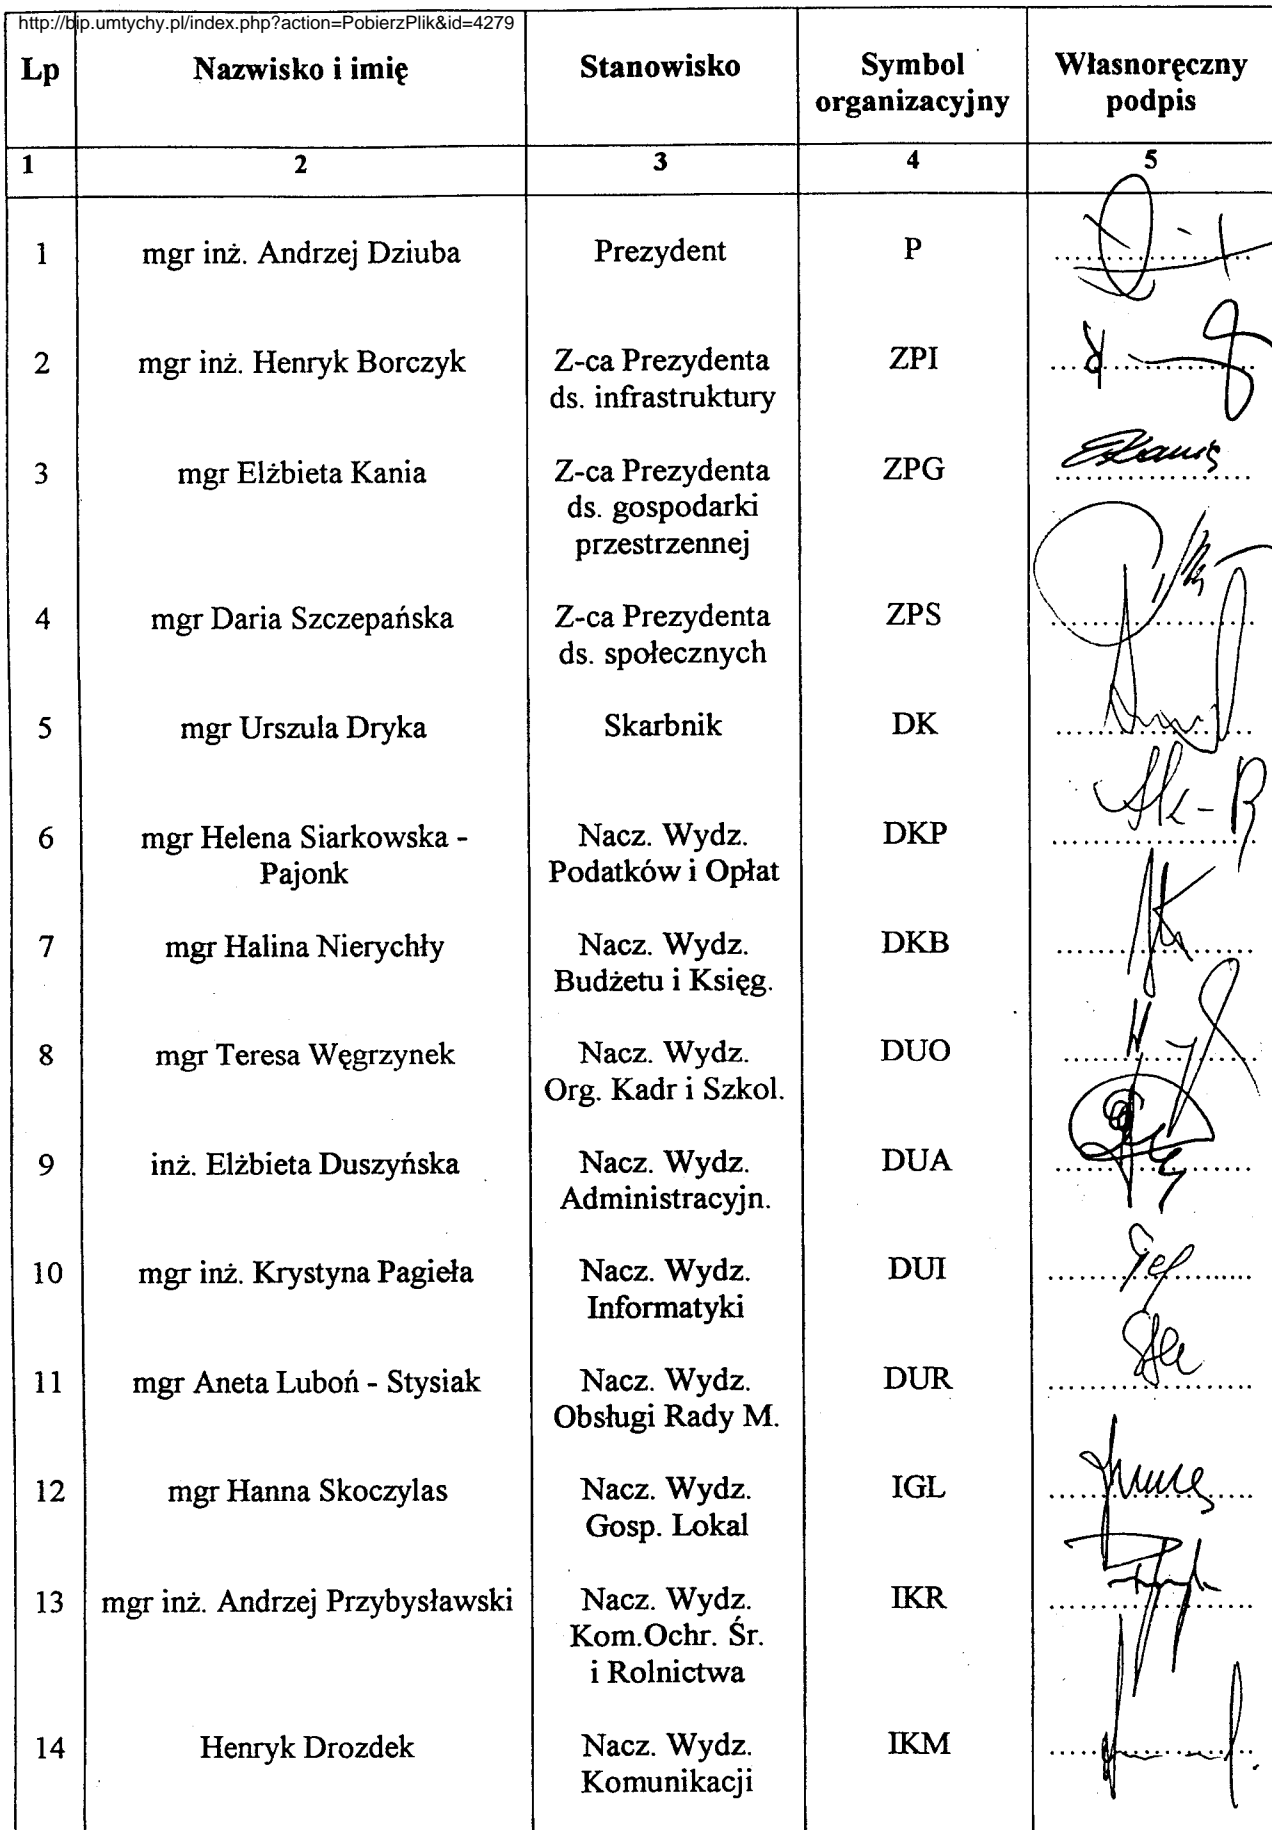 http://bip.umtychy.pl/index.php?action=PobierzPlik&id=4279
Lp Nazwisko i imię Stanowisko Symbol organizacyjny Własnoręczny podpis
1 2 3 4 5
1 mgr inż. Andrzej Dziuba Prezydent P
2 mgr inż. Henryk Borczyk Z-ca Prezydenta ZPI
ds. infrastruktury
3 mgr Elżbieta Kania Z-ca Prezydenta ZPG
ds. gospodarki
przestrzennej
4 mgr Daria Szczepańska Z-ca Prezydenta ZPS
ds. społecznych
5 mgr Urszula Dryka Skarbnik DK
6 mgr Helena Siarkowska - Nacz. Wydz. DKP
Pajonk Podatków i Opłat
7 mgr Halina Nierychły Nacz. Wydz. DKB
Budżetu i Księg.
8 mgr Teresa Węgrzynek Nacz. Wydz. DUO
Org. Kadr i Szkol.
9 inż. Elżbieta Duszyńska Nacz. Wydz. DUA
Administracyjn.
10 mgr inż. Krystyna Pagieła Nacz. Wydz. DUI
Informatyki
11 mgr Aneta Luboń - Stysiak Nacz. Wydz. DUR
Obsługi Rady M.
12 mgr Hanna Skoczylas Nacz. Wydz. IGL
Gosp. Lokal
13 mgr inż. Andrzej Przybysławski Nacz. Wydz. IKR
Kom.Ochr. Śr.
i Rolnictwa
14 Henryk Drozdek Nacz. Wydz. IKM
Komunikacji